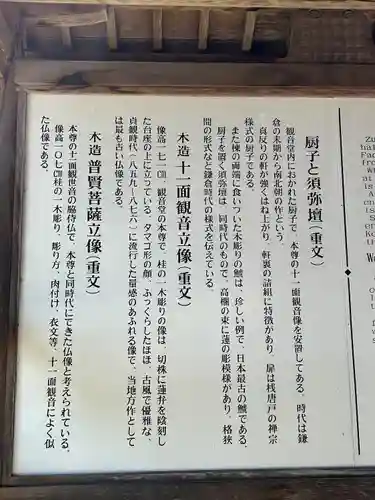 厨子と須弥壇(重文)
観音堂内におかれた厨子で、本尊の十一面観音像を安置してある。時代は鎌
倉の末期から南北朝の作という。
真反りの軒が強くはね上がり、軒裏の詰組に特徴があり、扉は桟唐戸の禅宗
様式の厨子である。
また棟の両端に食いついた木彫りの鯱は、珍しい例で、日本最古の鯱である。
厨子を置く須弥壇は、同時代のもので、高欄の束に蓮の彫模様があり、格狭
間の形式など鎌倉時代の様式を伝えている。
木造 十一面観音立像(重文)
像高一七一㎝、観音堂の本尊で、桂の一木彫りの像は、切株に蓮弁を陰刻し
た台座の上に立っている。タマゴ形の顔、ふっくらしたほほ、古風で優雅な、
貞観時代(八五九~八七六)に流行した量感のあふれる像で、当地方作として
は最も古い仏像である。
木造 普賢菩薩立像(重文)
本尊の十一面観世音の脇侍仏で、本尊と同時代にできた仏像と考えられている。
像高一〇七㎝桂の一木彫り、彫り方、肉付け、衣文等、十一面観音によく似
た仏像である。